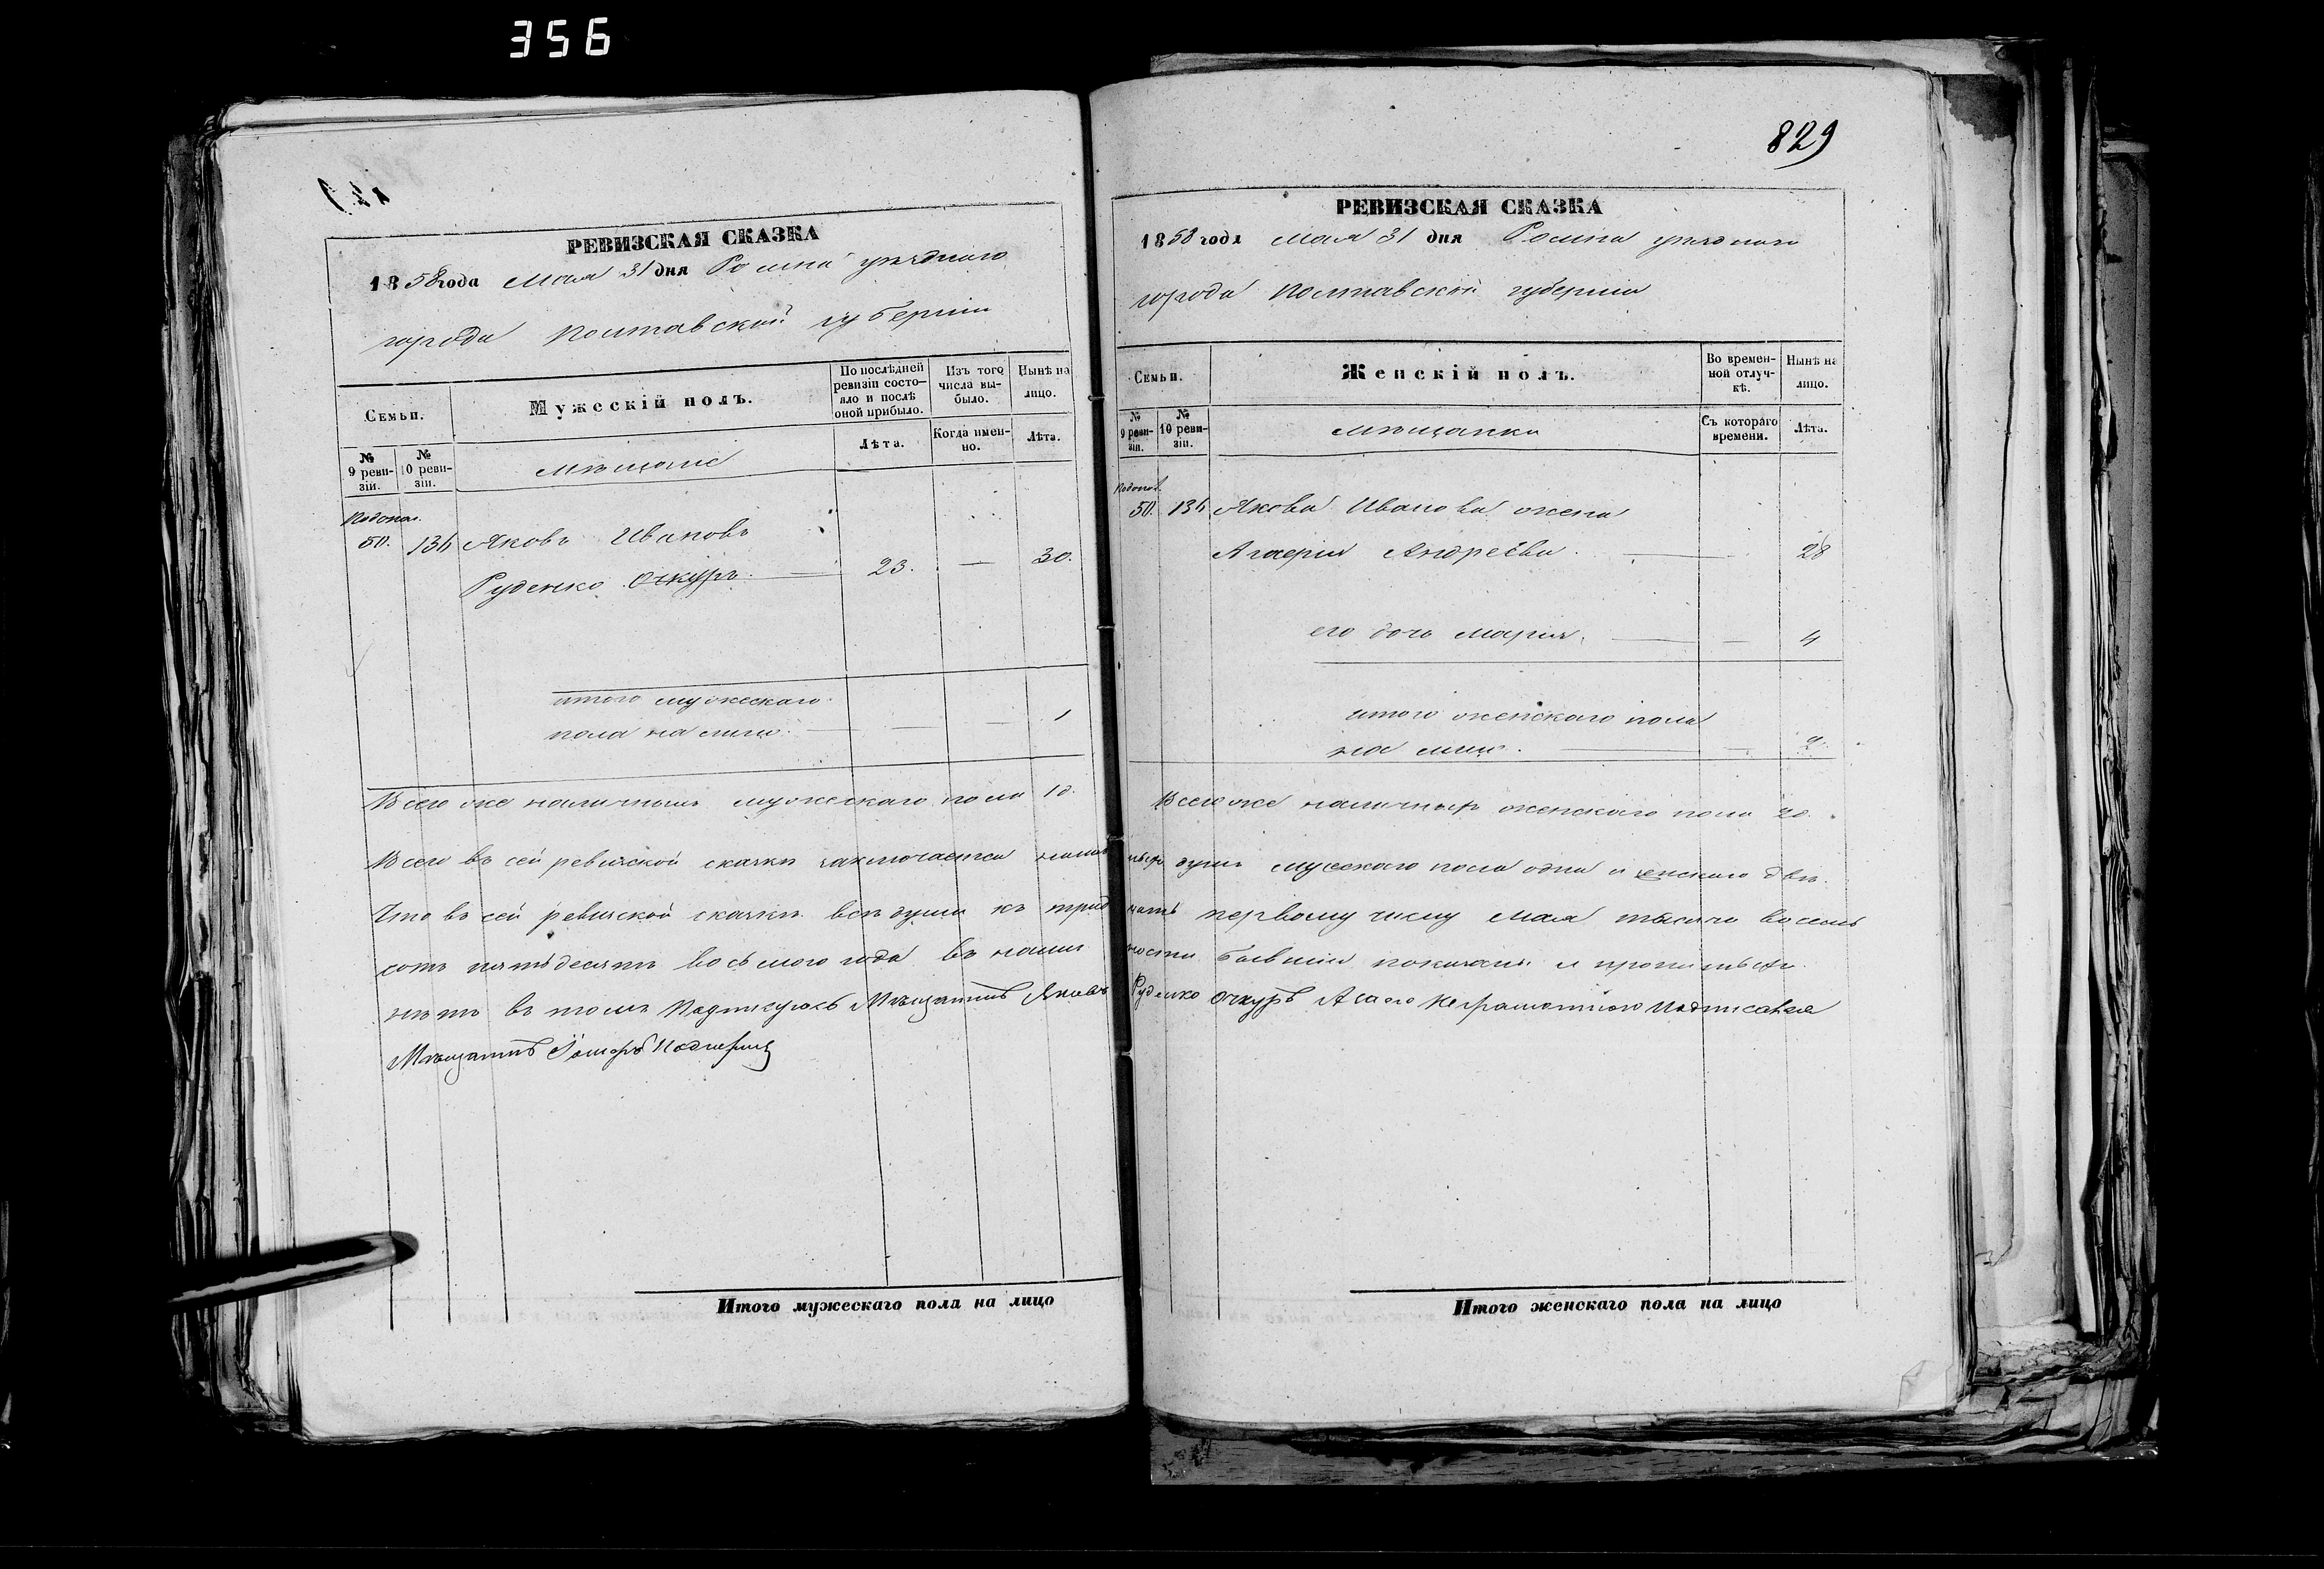 356
829
РЕВИЗСКАЯ СКАЗКА
1858 года Мая 31 дня Ромна уѣзднаго
города Полтавской губерніи
Семьи.
Мужескій полъ.
По послѣдней ревизіи состо-
яло и послѣ
оной прибыло.
Изъ того
числа вы-
было.
Нынѣ на
лицо.
№
9 реви-
зіи.
№
10 реви-
зіи.
мѣщане
Лѣта.
Когда имен-
но.
Лѣта.
50. 136 Яковъ Ивановъ
Руденко Очкуръ. 23. — 30.
итого мужескаго
пола на лицо. — — 1
Всего же наличныхъ мужескаго пола 1 д.
РЕВИЗСКАЯ СКАЗКА
1858 года Мая 31 дня Ромна уѣзднаго
города Полтавской губерніи
Семьи.
Женскій полъ.
Во времен-
ной отлуч-
кѣ.
Нынѣ на
лицо.
№
9 реви-
зіи.
№
10 реви-
зіи.
мѣщанки
Съ котораго
времени.
Лѣта.
50. 136 Якова Иванова жена
Агафія Андреева. — 28
его дочь Марія. — — 4
итого женскаго пола
на лицо. — — 2.
Всего же наличныхъ женскаго пола 2 д.
Всего въ сей ревизской сказкѣ заключается наличныхъ душъ мужескаго пола одна и женскаго двѣ.
Что въ сей ревизской сказкѣ всѣ души къ тридцать первому числу Мая тысяча восемь
сотъ пятьдесятъ восьмого года въ наличности бывшіи показаны и прописныхъ
нѣтъ въ томъ подписуюсь Мѣщанинъ Яковъ Руденко Очкуръ А за его неграмотного подписался
Мѣщанинъ
Итого мужескаго пола на лицо
Итого женскаго пола на лицо